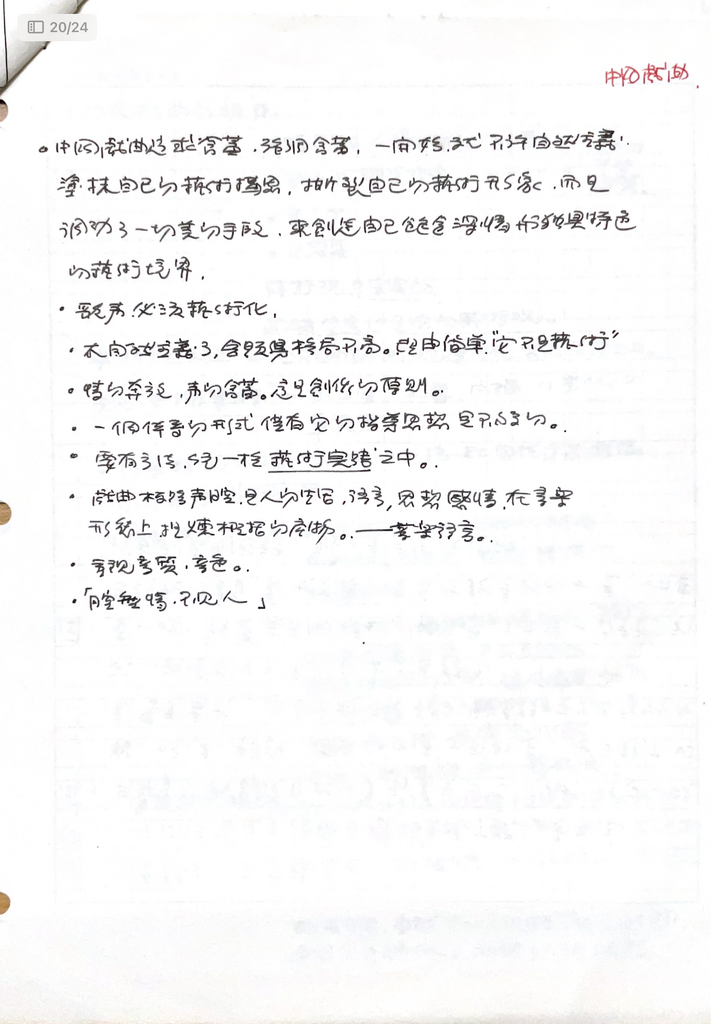 20/24
中國戲曲
。中國戲曲追求含蓄、強調含蓄,一開始就不許自然主義
塗抹自己的藝術構思,撕裂自己的藝術形象,而是
調動了一切美的手段,來創造自己飽含深情形狀獨具特色
的藝術境界。
· 哭聲必須藝術化,
· 太自然主義了,會顯得格局不高。理由簡單“它不是藝術”
· 情的奔放,聲的含蓄。這是創作的原則。
· 一個作者的形式 但看它的指導思想是不變的。
· 要有方法,統一在藝術實踐之中。
· 戲曲板路聲腔,是人的生活,語言,思想感情,在音樂
形象上提煉概括的產物。——音樂語言。
· 重視音質、音色。
· 「腔無情,不見人」